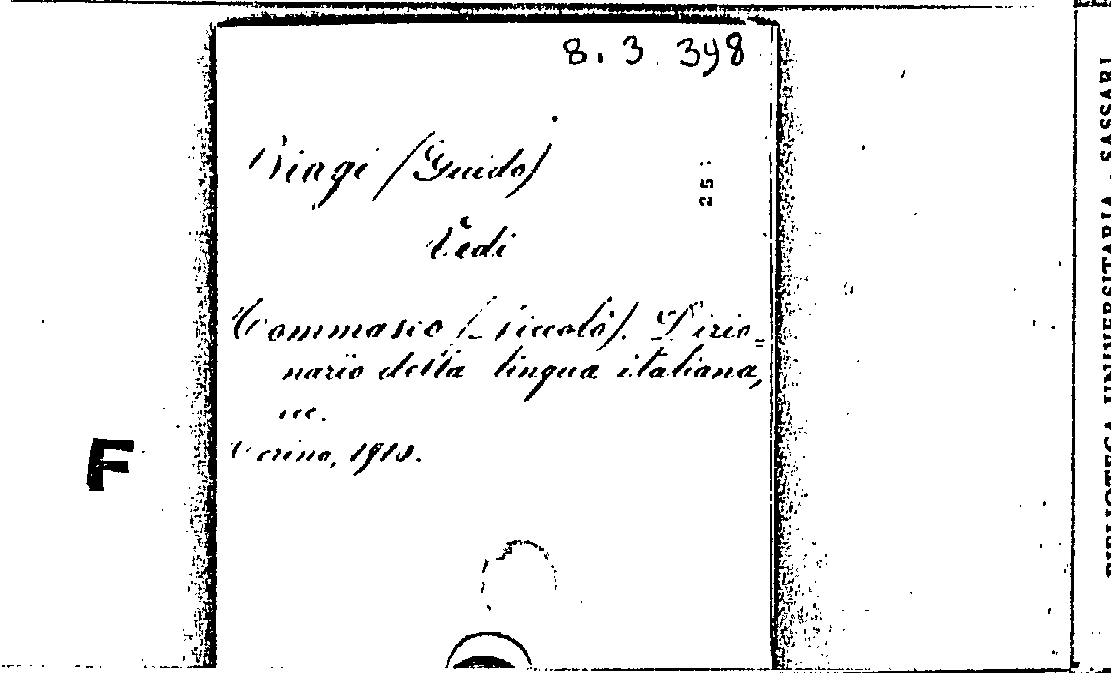 8. 3 398
Biagi (Guido)
251
Vedi
Tommaseo (Niccolò). Dizio=
nario della lingua italiana,
ecc.
Torino, 1915.
F
BIBLIOTECA UNIVERSITARIA - SASSARI